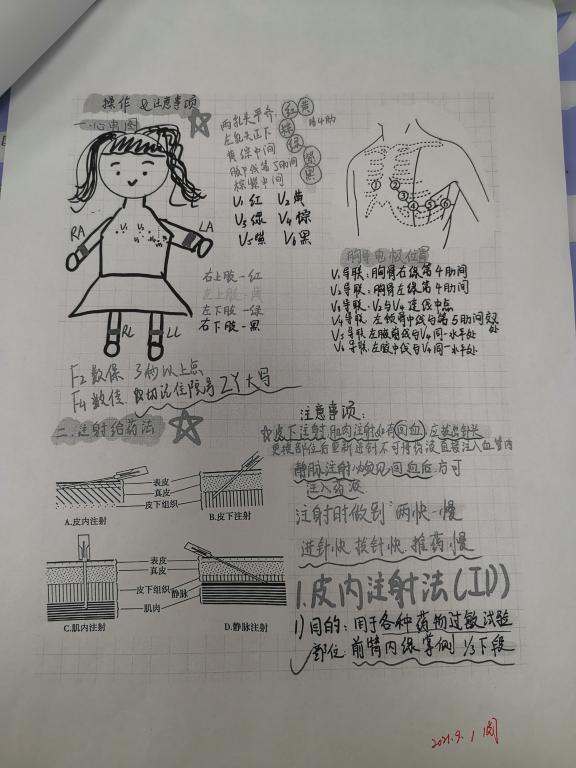 操作 及注意事项
一.心电图
两乳头平齐 红黄 第4肋
左乳头正下 棕
黄棕中间 绿
腋中线第5肋间 紫
棕紫中间 黑
V₁ 红 V₂ 黄
V₃ 绿 V₄ 棕
V₅ 黑 V₆ 黑
RA
LA
V₁ V₂
V₃
RL
LL
右上肢-红
左上肢-黄
左下肢-绿
右下肢-黑
① ② ③ ④ ⑤ ⑥
胸导电极位置
V₁导联:胸骨右缘第4肋间
V₂导联:胸骨左缘第4肋间
V₃导联:V₂与V₄连线中点
V₄导联 左锁骨中线与第5肋间交叉处
V₅导联 左腋前线与V₄同一水平处
V₆导联 左腋中线与V₄同一水平处
F₂数保 3秒以上点
F₄数信 切记住院号ZY大写
二.注射给药法
表皮
真皮
皮下组织
A.皮内注射
B.皮下注射
表皮
真皮
皮下组织
静脉
肌肉
C.肌内注射
D.静脉注射
注意事项:
☆皮下注射 肌肉注射如有回血 应拔出针头
更换部位后重新进针不可将药液直接注入血管内
静脉注射必须见回血后方可
注入药液
注射时做到"两快一慢
进针快 拔针快 推药慢
1.皮内注射法(ID)
1)目的:用于各种药物过敏试验
部位:前臂内缘掌侧 1/3下段
2021.9.1 阅